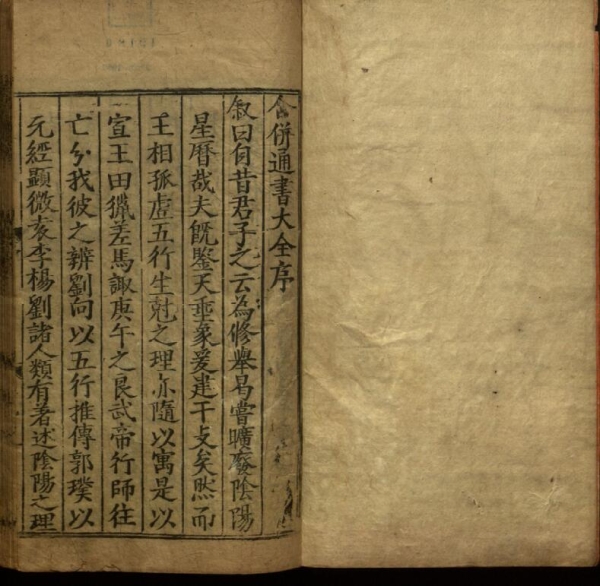 合併通書大全序
叙曰自昔君子之云為修舉曷嘗曠廢陰陽
星曆哉夫既鑒天垂象爰建干支矣然而
王相孤虛五行生尅之理亦隨以寓是以
宣王田獵差馬諏庚午之良武帝行師往
亡分我彼之辨劉向以五行推傳郭璞以
元經顯微袁李楊劉諸人類有著述陰陽之理